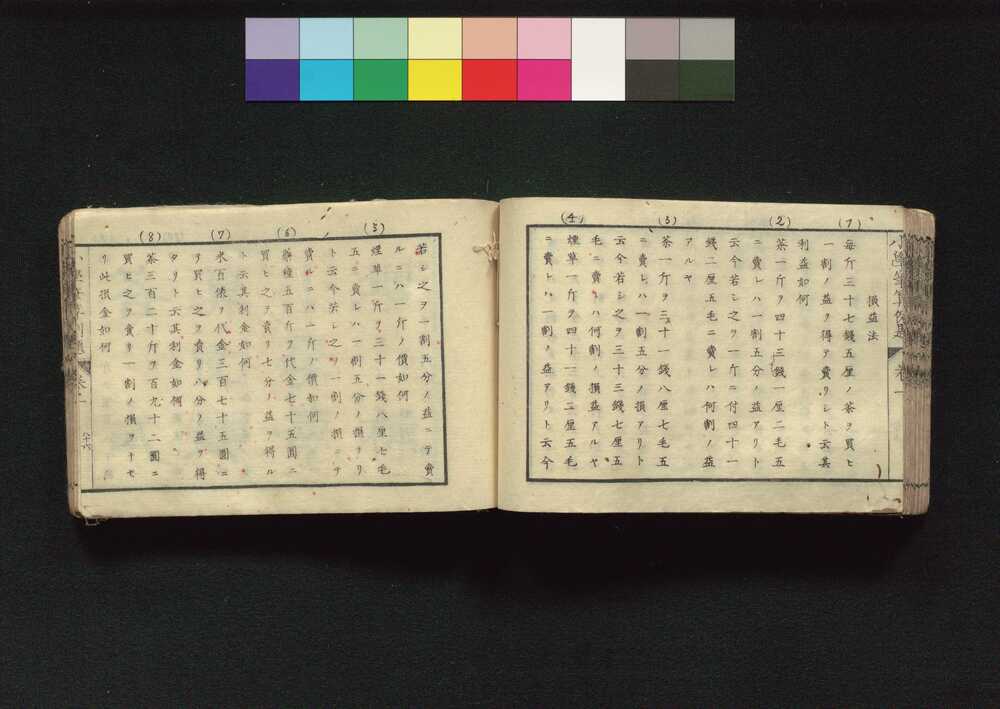 損益法
(1)
毎斤三十七錢五厘ノ茶ヲ買ヒ
一割ノ益ヲ得テ賣リシト云其
利益如何
(2)
茶一斤ヲ四十三錢一厘二毛五
ニ賣レハ一割五分ノ益アリト
云今若シ之ヲ一斤ニ付四十一
錢二厘五毛ニ賣レハ何割ノ益
アルヤ
(3)
茶一斤ヲ三十一錢八厘七毛五
ニ賣レハ一割五分ノ損アリト
云今若シ之ヲ三十三錢七厘五
毛ニ賣レハ何割ノ損益アルヤ
(4)
煙草一斤ヲ四十一錢二厘五毛
ニ賣レハ一割ノ益アリト云今
若シ之ヲ一割五分ノ益ニテ賣
ルニハ一斤ノ價如何
(5)
煙草一斤ヲ三十一錢八厘七毛
五ニ賣レハ一割五分ノ損アリ
ト云今若シ之ヲ一割ノ損ニテ
賣ルニハ一斤ノ價如何
(6)
五百斤ヲ代金七十五圓ニ
買ヒ之ヲ賣リ七分ノ益ヲ得ル
ト云其利金如何
(7)
米百俵ヲ代金三百七十五圓ニ
テ買ヒ之ヲ賣リ八分ノ益ヲ得
タリト云其利金如何
(8)
茶三百二十斤ヲ百九十二圓ニ
買ヒ之ヲ賣リ一割ノ損ヲナセ
リ此損金如何